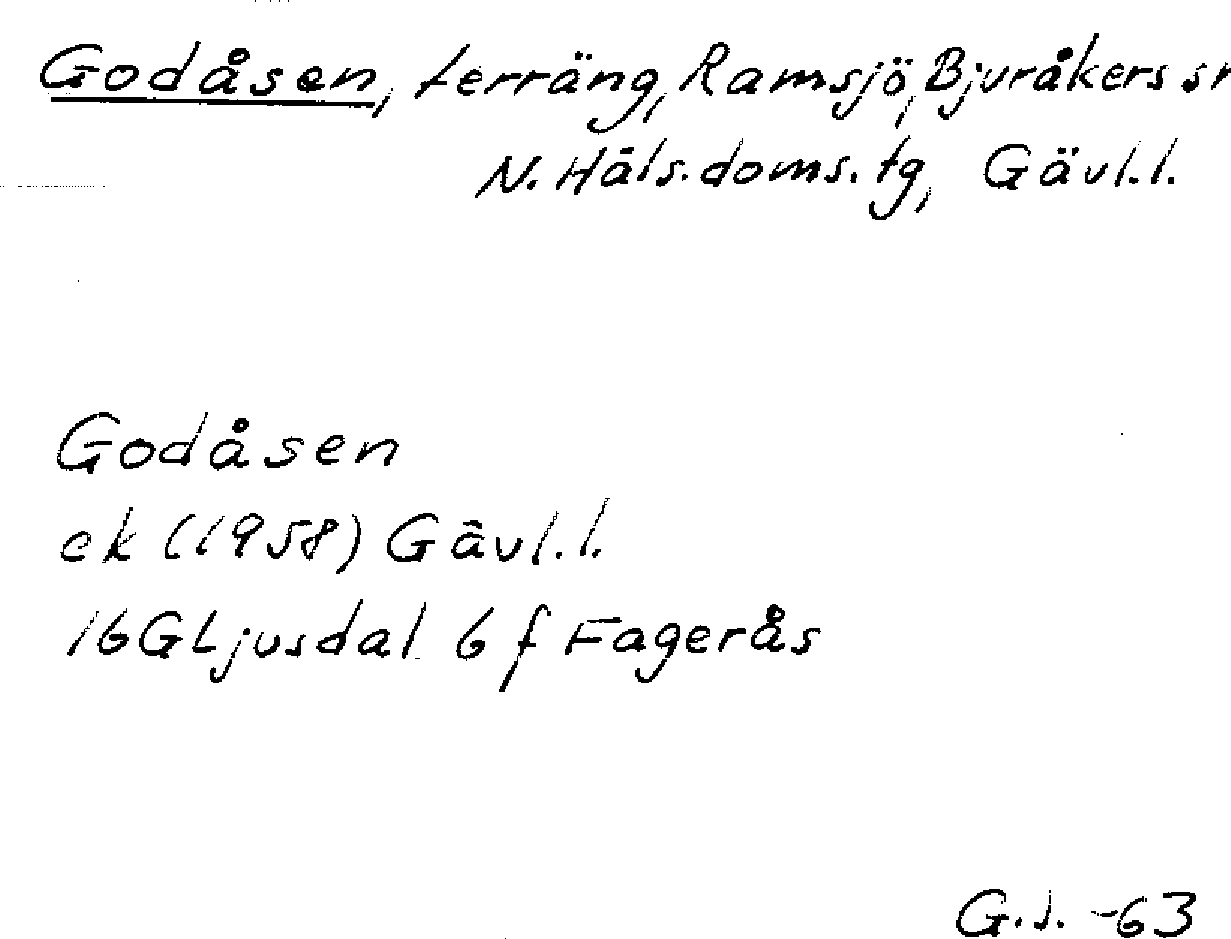 Godåsen, terräng, Ramsjö, Bjuråkers sn
N. Häls. doms. tg, Gävl.l.
Godåsen
ek (1958) Gävl.l.
16G Ljusdal 6 f Fagerås
G.J. -63